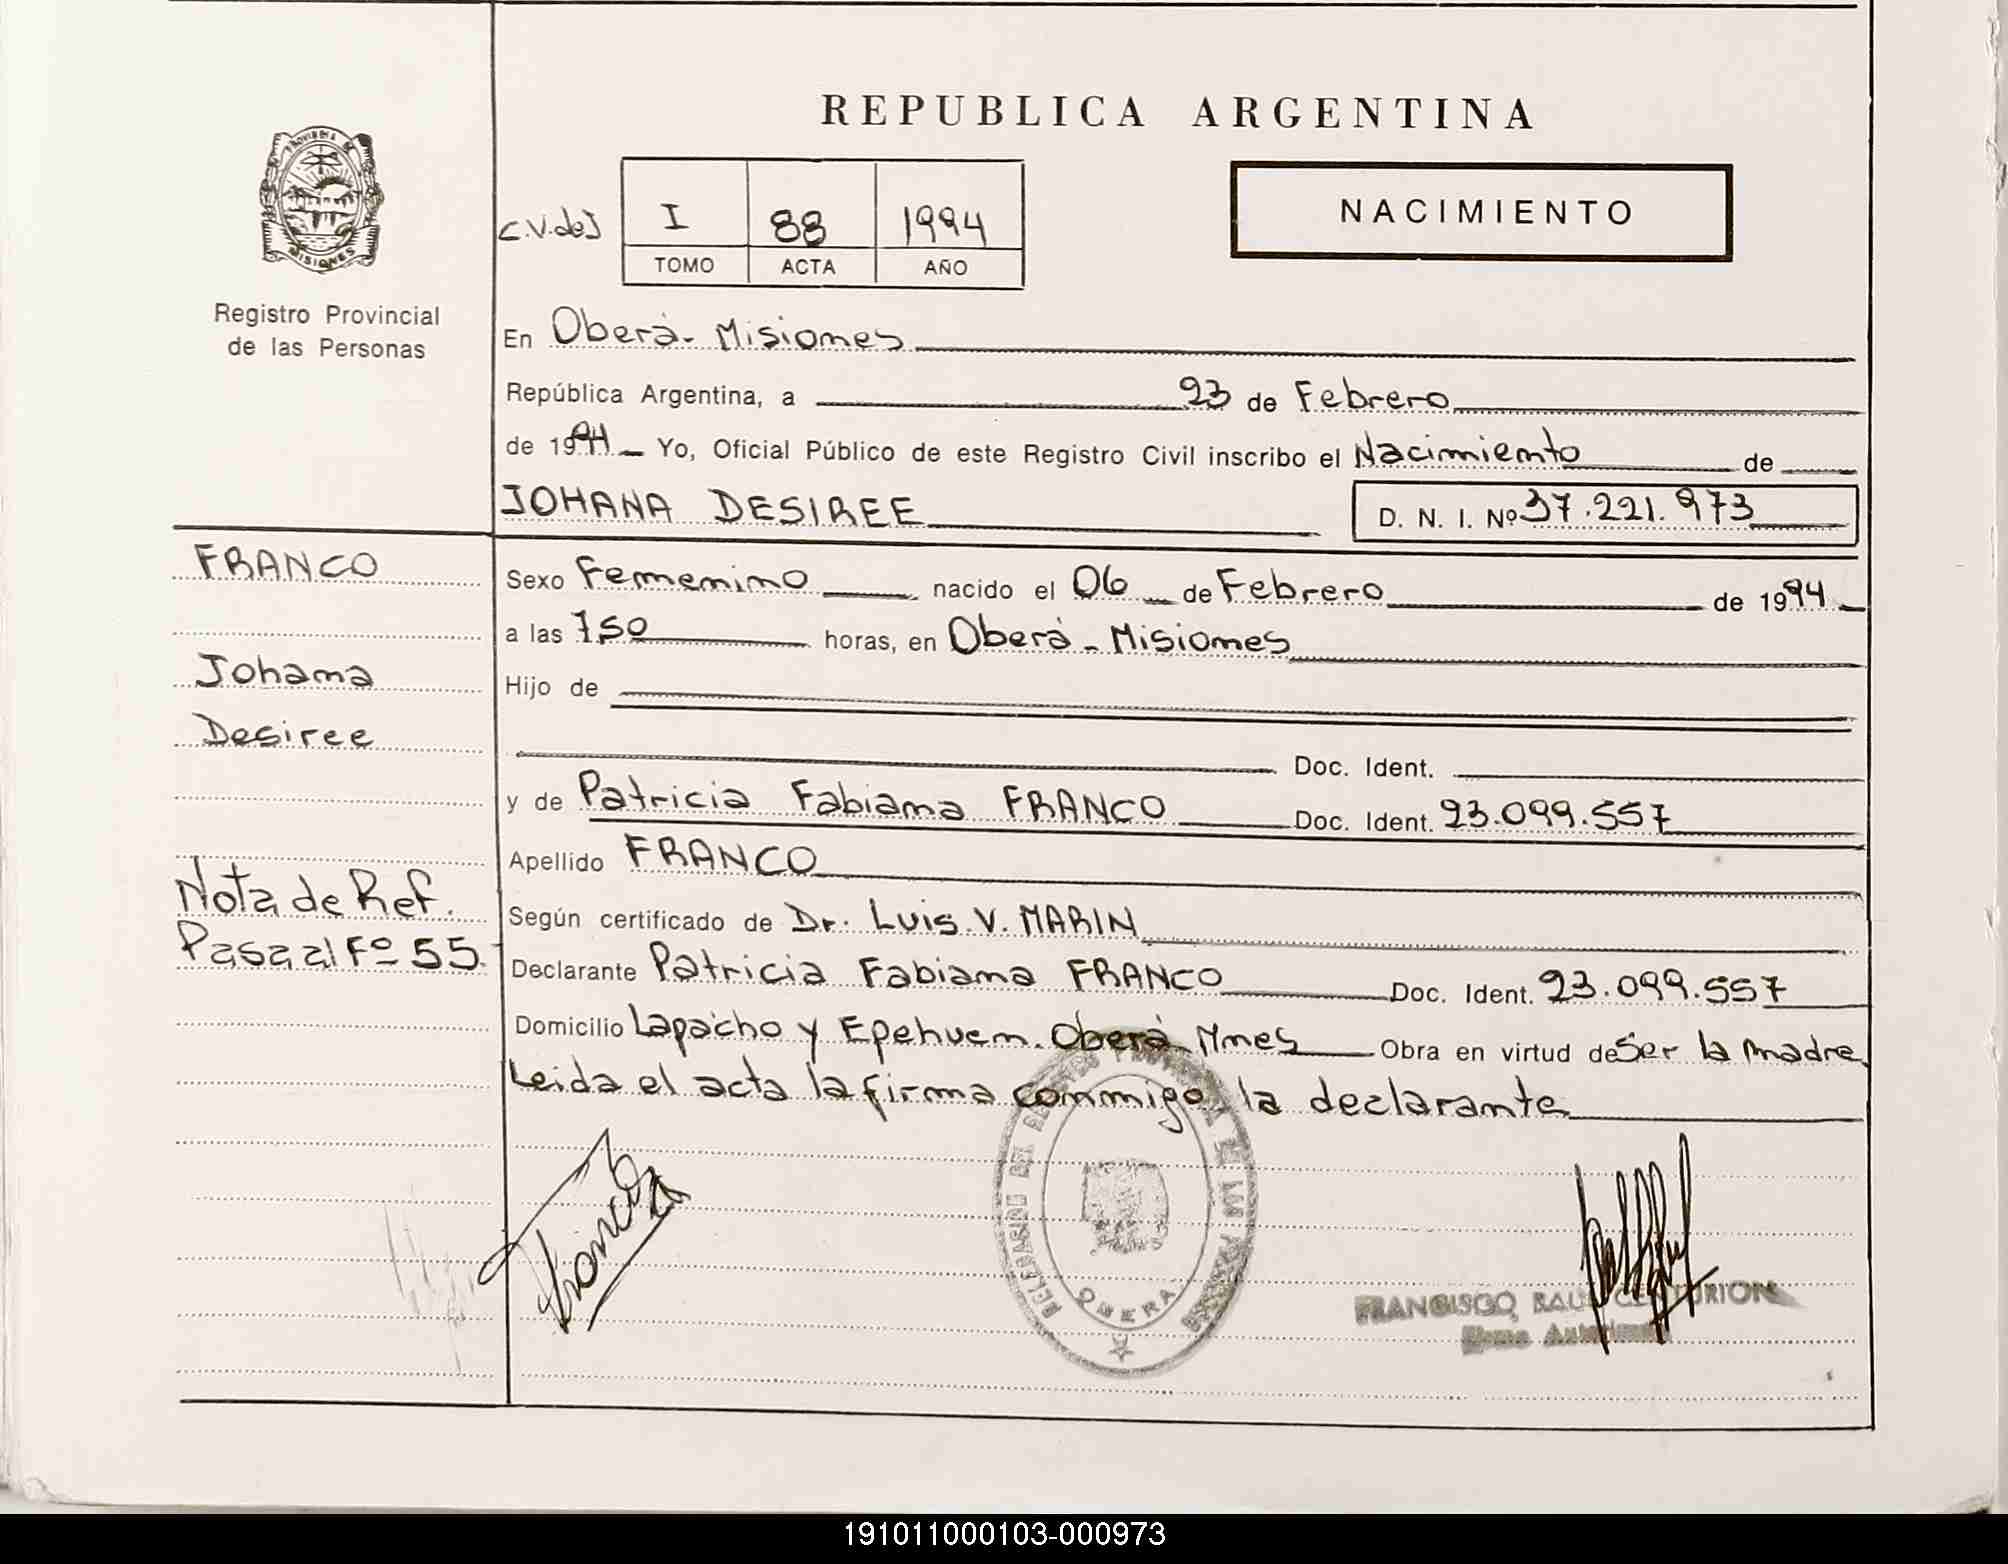 REPUBLICA ARGENTINA
PROVINCIA DE
MISIONES
Registro Provincial
de las Personas
C.V.deJ
I 88 1994
TOMO ACTA AÑO
NACIMIENTO
En Oberá - Misiones
República Argentina, a 23 de Febrero
de 1994 Yo, Oficial Público de este Registro Civil inscribo el Nacimiento de
JOHANA DESIREE D. N. I. Nº 37.221.973
FRANCO
Johana
Desiree
Nota de Ref.
Pasa al Fº 55.
Sexo Femenino nacido el 06 de Febrero de 1994
a las 7,50 horas, en Oberá - Misiones
Hijo de
Doc. Ident.
y de Patricia Fabiana FRANCO Doc. Ident. 23.099.557
Apellido FRANCO
Según certificado de Dr. Luis V. MARIN
Declarante Patricia Fabiana FRANCO Doc. Ident. 23.099.557
Domicilio Lapacho y Epehuen. Oberá Mnes Obra en virtud de Ser la madre
Leida el acta la firma conmigo la declarante
DELEGACION DEL REGISTRO PROVINCIAL DE LAS PERSONAS
OBERA
FRANCISCO RAUL CENTURION
191011000103-000973